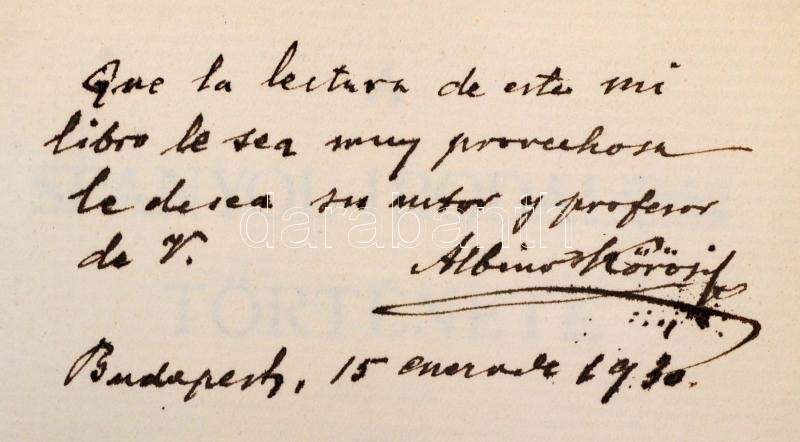 Que la lectura de este mi
libro le sea muy provechosa
le desea su autor y profesor
de V.
Albino Körösi
Budapest, 15 enero de 1930.
SPANYOL IRODALOM
TÖRTÉNETE
darabanth